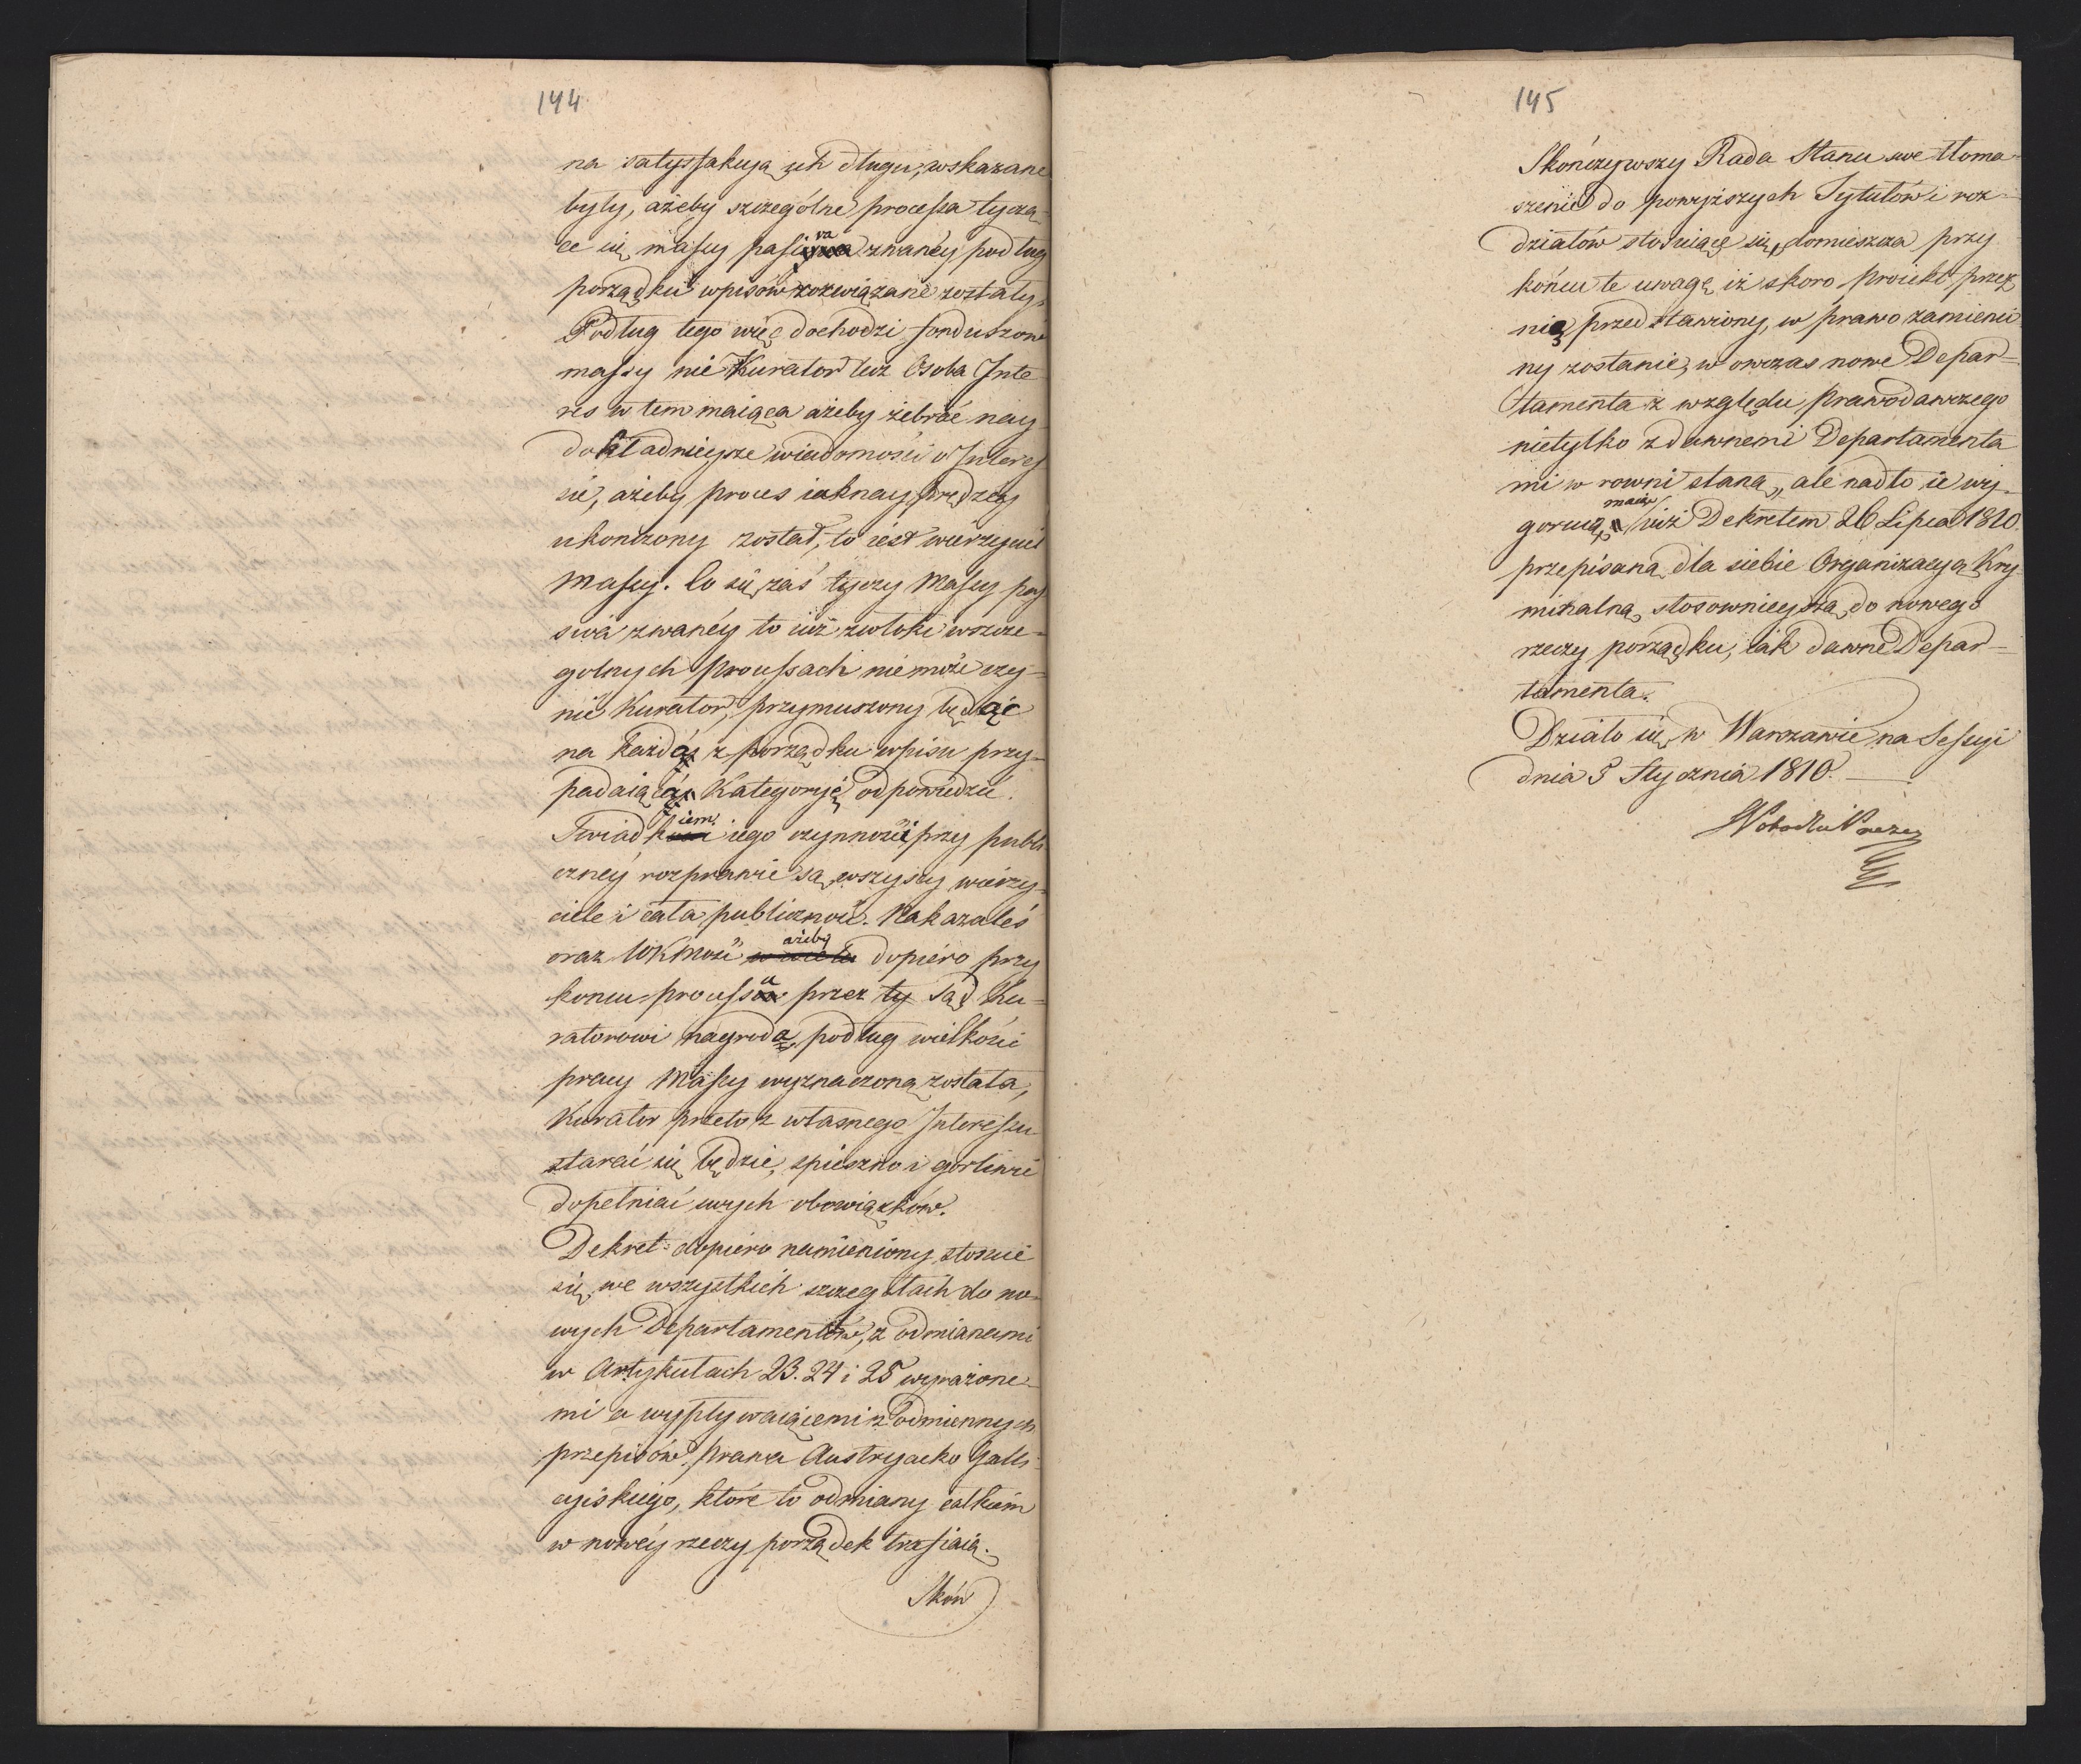 144
na satysfakcyą ich długu, wskazane
były, ażeby szczególne processa tyczą-
ce się massy passiva zwanéy podług
porządku wpisów rozwiązane zostały.
Podług tego więc dochodzi funduszów
massy nie Kurator lecz Osoba Inte
res w tem maiąca ażeby zebrać nay
dokładnieysze wiadomości o Interes
sie, ażeby proces iaknayprędzéy
ukończony został, to iest wierzyciel
Massy. Co się zaś tyczy Massy pas
siva zwanéy to iuż zwłoki wszcze-
gólnych processach nie może czy-
nić Kurator, przymuszony będąc
na każdą z porządku wpisu przy-
padaiącą Kategoryę odpowiedzieć.
Świadkiem iego czynności przy publi
cznéy rozprawie są wszyscy wierzy-
ciele i cała publiczność. Nakazałeś
oraz WKMość ażeby dopiéro przy
końcu processu przez ty Sąd Ku-
ratorowi nagrodą podług wielkości
pracy Massy wyznaczoną została,
Kurator przeto z własnego Interessu
starać się będzie, spieszno i gorliwie
dopełniać swych obowiązków.
Dekret dopiéro namieniony stosuie
się we wszystkich szczegółach do no-
wych Departamentów, z odmianami
w Artykułach 23. 24 i 25 wyrażone-
mi a wypływaiącemi z odmiennych
przepisów Prawa Austryacko Galli-
cyiskiego, które to odmiany całkiem
w nowéy rzeczy porządek trafiaią.
Skoń
145
Skończywszy Rada Stanu swe tłoma-
czenie do powyższych Tytułów i roz-
działów stosuiące się, domieszcza przy
końcu te uwagę, iż skoro proiekt przez
nią przedstawiony, w prawo zamienio
ny zostanie, w owczas nowe Depar-
tamenta z względu prawodawczego
nietylko z dawnemi Departamenta
mi w równi staną, ale nadto ie wy-
goruią, maiąc iuż Dekretem 26 Lipca 1810.
przepisaną dla siebie Organizacyą Kry
minalną stosownieyszą do nowego
rzeczy porządku, iak dawne Depar-
tamenta.
Działo się w Warszawie na Sessyi
dnia 5 Stycznia 1810.